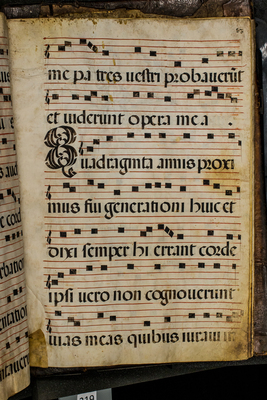 me pa tres uestri probauerūt
et uiderunt opera me a
Quadraginta annis proxi
mus fui generationi huic et
dixi semper hi errant corde
ipsi uero non cognouerunt
uias meas quibus iuraui
219